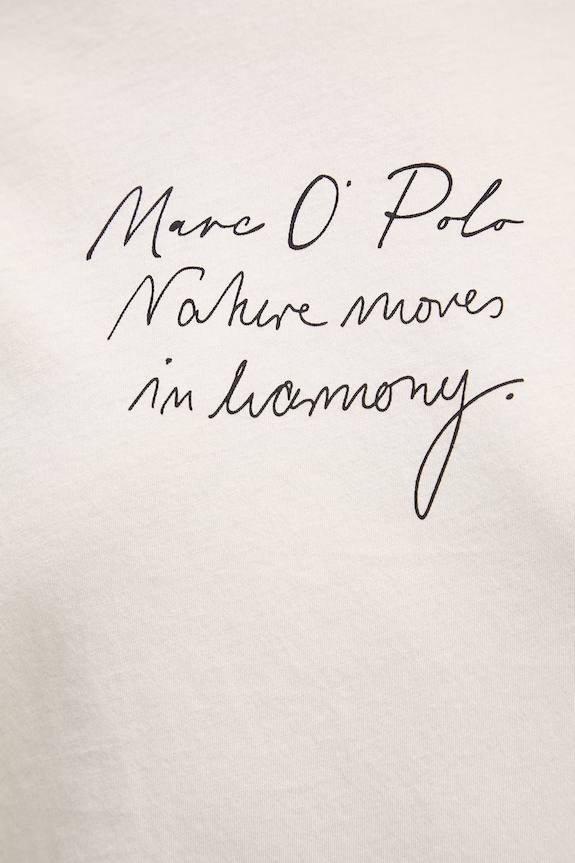 Marc O'Polo
Nature moves
in harmony.